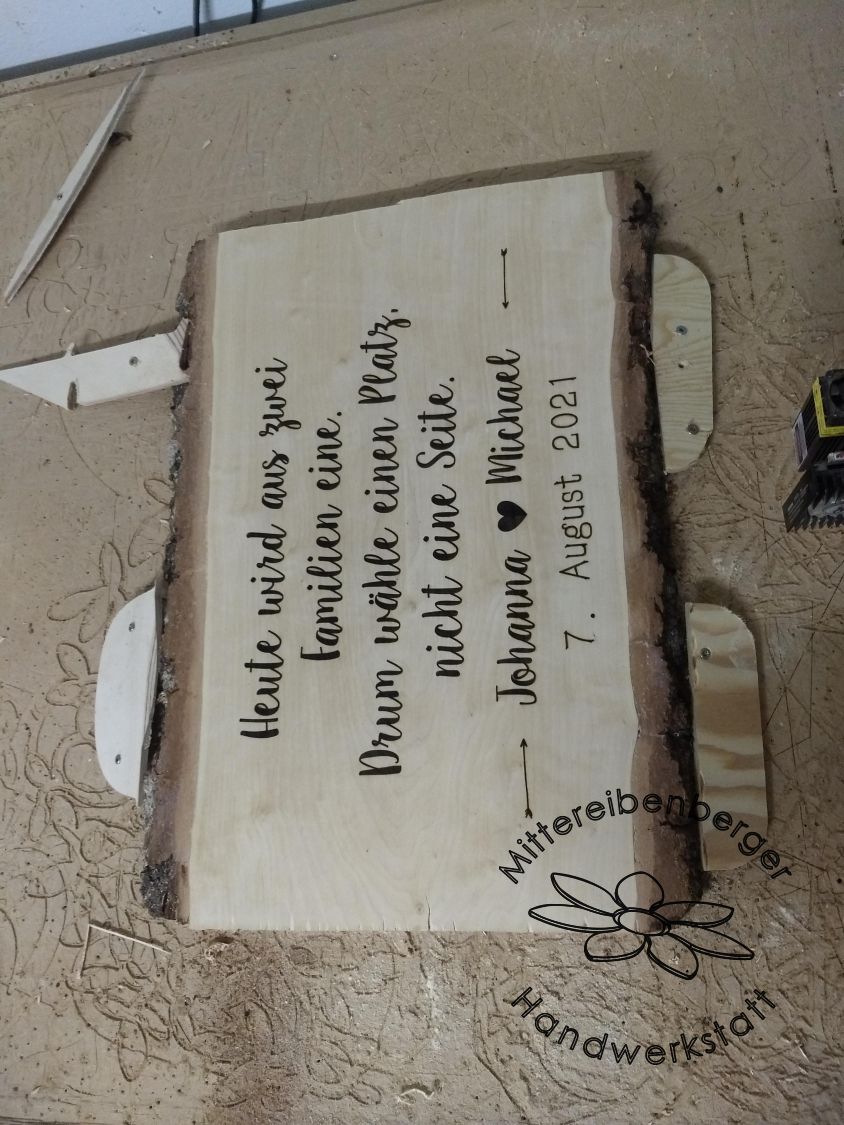 Heute wird aus zwei
Familien eine.
Drum wähle einen Platz,
nicht eine Seite.
Johanna ♥ Michael
7. August 2021
Mittereibenberger
Handwerkstatt